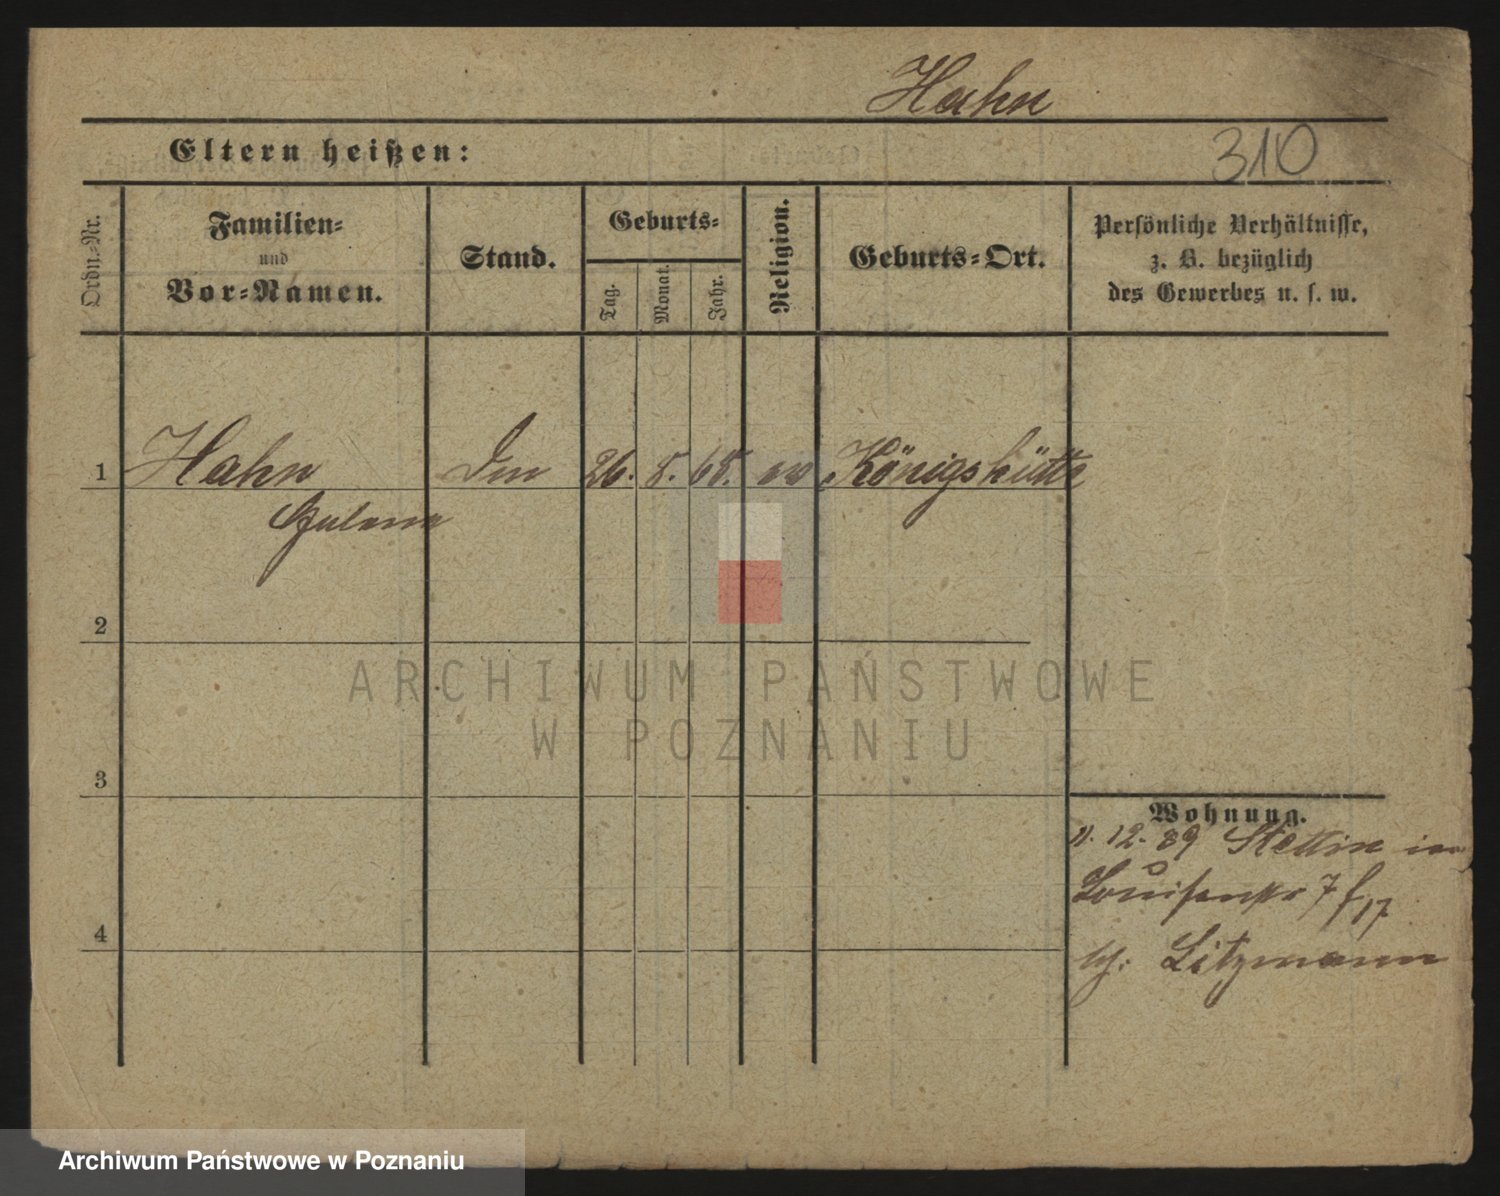 Hahn
310
Eltern heißen:
Ordn.-Nr.
Familien-
und
Vor-Namen.
Stand.
Geburts-
Tag.
Monat.
Jahr.
Religion.
Geburts-Ort.
Persönliche Verhältnisse,
z. B. bezüglich
des Gewerbes u. s. w.
1 Hahn 26. 8. 68. ev Königshütte
2
3
4
Wohnung.
11. 12. 89 Stettin
Louisenstr 7
Litzmann
ARCHIWUM PAŃSTWOWE
W POZNANIU
Archiwum Państwowe w Poznaniu